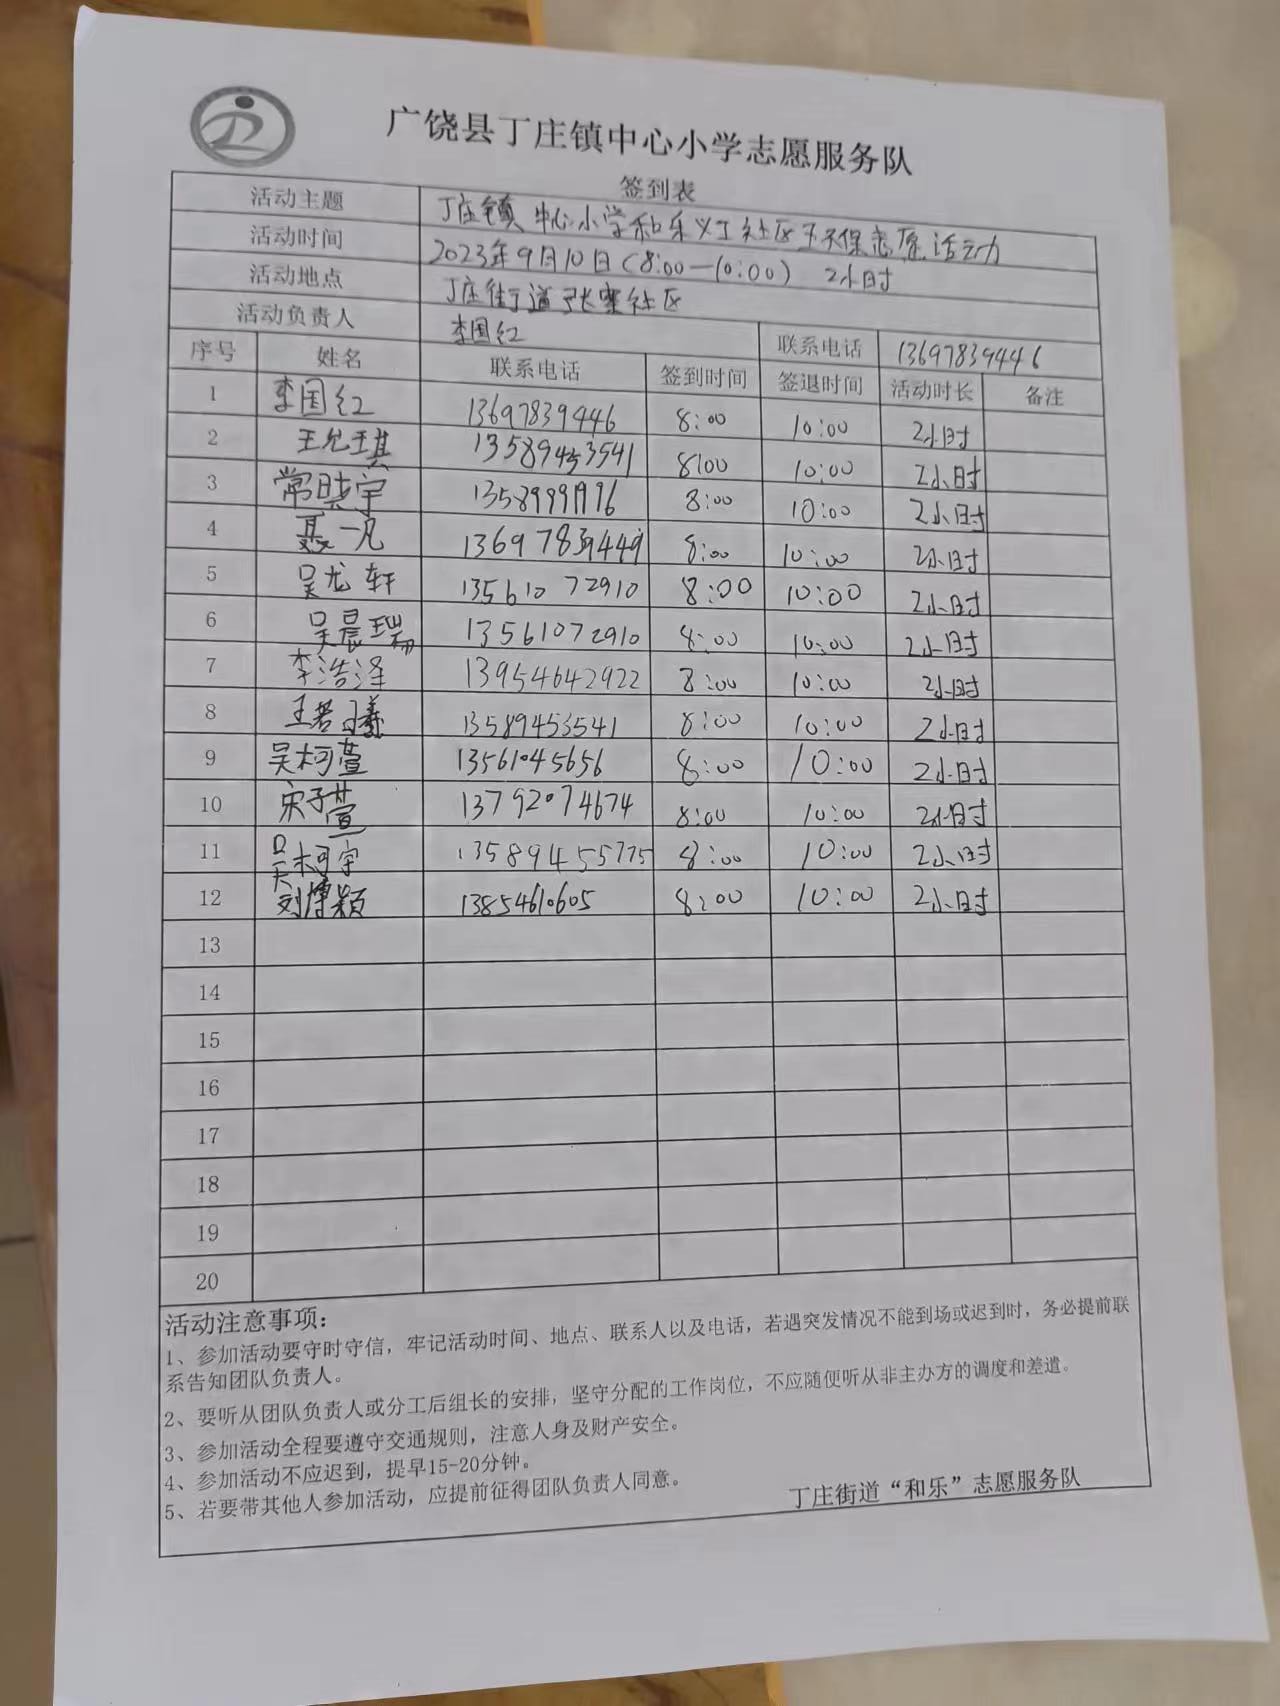 广饶县丁庄镇中心小学志愿服务队
签到表
活动主题 丁庄镇中心小学和乐义工社区环保志愿活动
活动时间 2023年9月10日(8:00—10:00) 2小时
活动地点 丁庄街道张寨社区
活动负责人 李国红 联系电话 13697839446
序号 姓名 联系电话 签到时间 签退时间 活动时长 备注
1 李国红 13697839446 8:00 10:00 2小时
2 王允琪 13589453541 8:00 10:00 2小时
3 常晓宇 8:00 10:00 2小时
4 聂一凡 13697839449 8:00 10:00 2小时
5 吴龙轩 13561072910 8:00 10:00 2小时
6 吴晨瑞 13561072910 8:00 10:00 2小时
7 李浩泽 13954642922 8:00 10:00 2小时
8 王若曦 13589453541 8:00 10:00 2小时
9 吴柯萱 13561045656 8:00 10:00 2小时
10 宋子萱 13792074674 8:00 10:00 2小时
11 吴柯宇 13589455775 8:00 10:00 2小时
12 刘博颖 13854610605 8:00 10:00 2小时
13
14
15
16
17
18
19
20
活动注意事项:
1、参加活动要守时守信，牢记活动时间、地点、联系人以及电话，若遇突发情况不能到场或迟到时，务必提前联
系告知团队负责人。
2、要听从团队负责人或分工后组长的安排，坚守分配的工作岗位，不应随便听从非主办方的调度和差遣。
3、参加活动全程要遵守交通规则，注意人身及财产安全。
4、参加活动不应迟到，提早15-20分钟。
5、若要带其他人参加活动，应提前征得团队负责人同意。
丁庄街道“和乐”志愿服务队